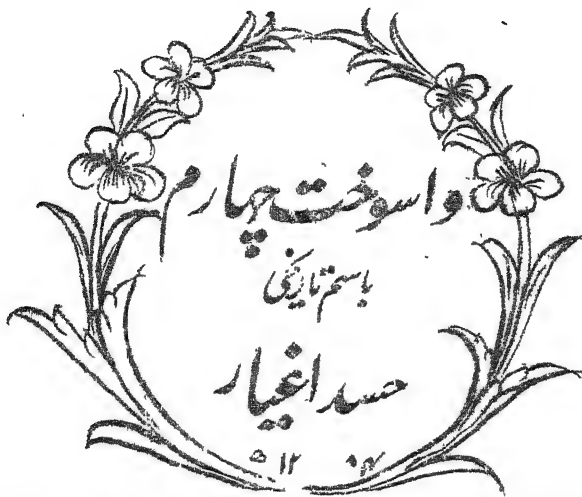 واسوخت چہارم
باسم تاریخی
حسد اغیار
۱۲۸۴ ھ